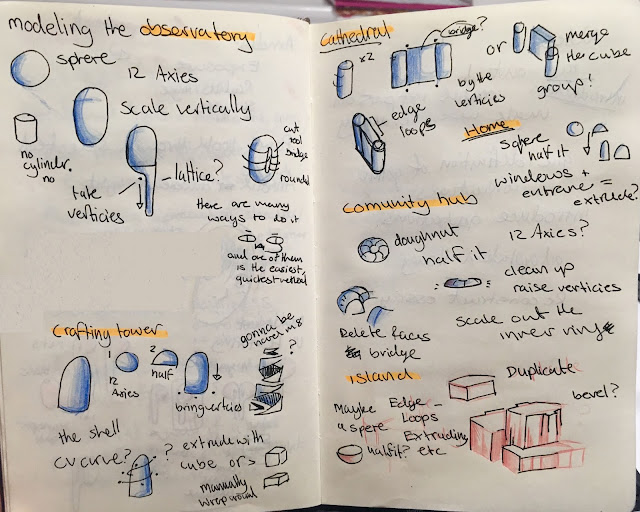 modeling the observatory
sprere
12 Axies
scale vertically
no
cylinder.
no
take
verticies
lattice?
cut
tool
bridge
rounded
there are many
ways to do it
and one of them
is the easiest,
quickest
crafting tower
1
2
12
Axies
half
bring verticies
gonna be
novel m8
?
the shell
cv curve?
? extrude with
cube or
manually
wrap around
Cathedral
x2
bridge?
by the
verticies
or
merge
the cube
group!
edge
loops
Home
Spere
half it
windows +
entrane = extrude?
comunity hub
doughnut
half it
12 Axies?
clean up
raise verticies
Delete faces
bridge
scale out the
inner ring
island
Duplicate
bevel?
Maybe
a spere
halfit?
Edge -
Loops
Extruding
etc